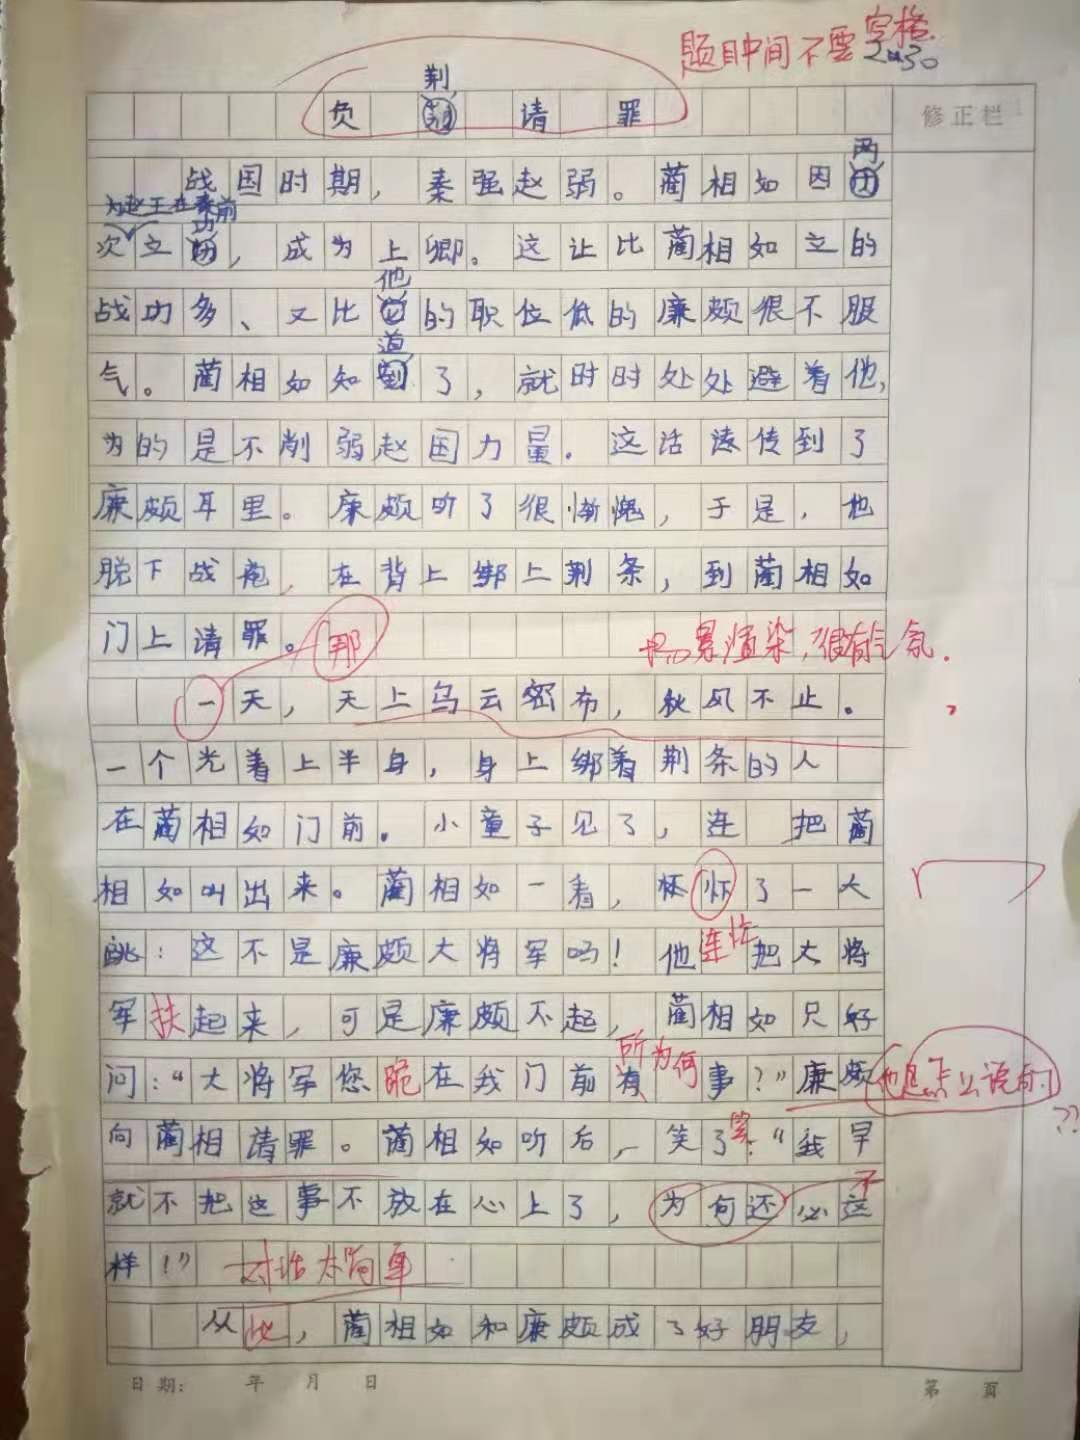 题目中间不要空格.
荆
负 请 罪
修正栏
两
战国时期，秦强赵弱。蔺相如因
为赵王在秦前
功
次立，成为上卿。这让比蔺相如立的
他
战功多、又比的职位低的廉颇很不服
道
气。蔺相如知了，就时时处处避着他，
为的是不削弱赵国力量.这话传到了
廉颇耳里。廉颇听了很惭愧，于是，他
脱下战袍，在背上绑上荆条，到蔺相如
门上请罪。那
景渲染，很有气氛.
一天，天上乌云密布，秋风不止。
一个光着上半身，身上绑着荆条的人
在蔺相如门前。小童子见了，连 把蔺
相如叫出来。蔺相如一看，怀了一大
跳：这不是廉颇大将军吗！他连忙把大将
军扶起来，可是廉颇不起，蔺相如只好
所为何
问：“大将军您跪在我门前有事？”廉颇他是怎么说的??
向蔺相请罪。蔺相如听后，笑了：“我早
不
就不把这事不放在心上了，为何还必这
样！”对话太简单
从此，蔺相如和廉颇成了好朋友，
日期： 年 月 日
第 页